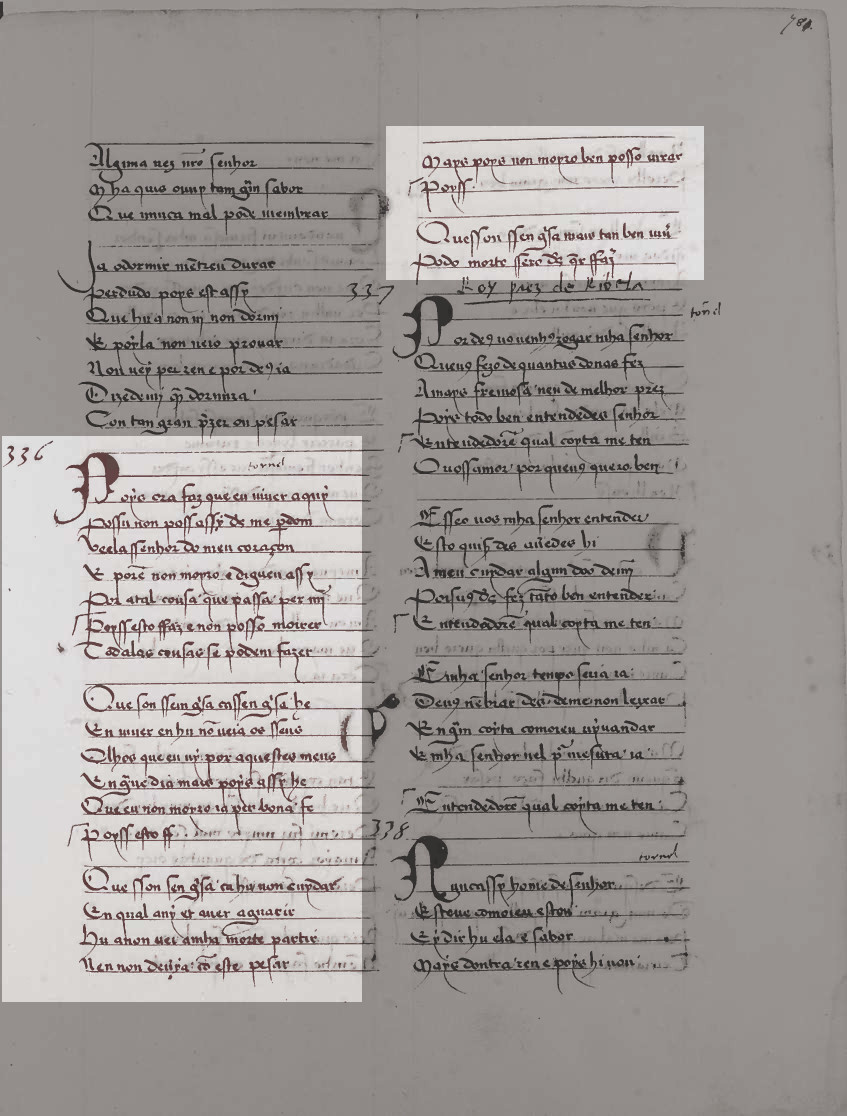 784
Algũna uez nr̃o senhor
Mha quis ouuỹ tam gñ sabor
Que nunca mal pode nembrar
Ja o dormir mẽtreu durar
Perdudo poys est assy
Que hu a non uj non dormj
E poýla non ueio prouar
Non uey per ren e por deꝯ ia
Dizedemj q̃ dormira
Con tan gran p̃zer ou pesar
336
tornel
Poys ora faz que eu uiuer aquy
Possu non poss assy de me pdom
Veelassenhor do meu coraçon
E porẽ non moyro e digueu assy
Por atal cousa que passa per mi
Poyss esto ffaz e non posso moirer
Todalas cousas se podem fazer
Que son ssem gˢsa ca ssen gˢsa he
En uiuer en hu nõ ueia os sseus
Olhos que eu uj por aquestes meus
En que dia mais poys assy he
Que eu non moyro ia per bona fe
Poyss esto ff
Que sson sen gˢsa ca hu non cuydar
En qual any et auer aguarir
Hu a non uei amha morte partir
Nen non deuýa cõ este pesar
Mays poys non moyro ben posso uirar
Poyss
Que sson ssen gˢsa tan ben
Podo morto ssero de q̃r ffaz
337
Roy paez de Ribela
tornel
Por deꝯ uos uenhꝯ rogar mha senhor
Que uꝯ fezo de quantas donas fez
A mays fremosa nẽu de melhor prez
Poys todo ben entendedes senhor
Entendedorẽ qual coyta me ten
Ouossamor por que uꝯ quero ben
E sseo uos mha senhor entender
Esto quis deꝯ auedes hi
A meu cuydar algun doo demj
Por suꝯ deꝯ fez tãto ben entender
Entendedorẽ qual coyta me ten
E mha senhor tempo seria ia
Deuꝯ nẽbrar deꝯ deme non leixar
En gñ coita comoieu uyuandar
E mha senhor uel pˢ mesura ia
Entendedorẽ qual coyta me ten
338
tornel
A guer assy home de senhor
Esteue comoieu estou
Ey dir hu ela e sabor
Mays dontra ren e poys hi uou